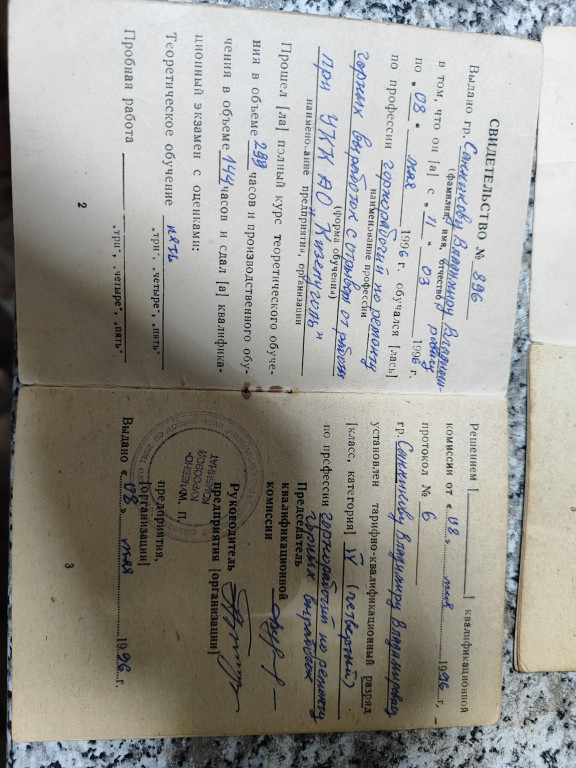 СВИДЕТЕЛЬСТВО № 896
Выдано гр. Санникову Владимиру Владими-
(фамилия, имя, отчество) ровичу
в том, что он [а] с „ 11 “ 03 1996 г.
по „ 08 “ мая 1996 г. обучался [лась]
по профессии горнорабочий по ремонту
наименование профессии
горных выработок с отрывом от работы
(форма обучения)
при УКК АО „Кизелуголь“
наименование предприятия, организации
Прошел [ла] полный курс теоретического обуче-
ния в объеме 288 часов и производственного обу-
чения в объеме 144 часов и сдал [а] квалифика-
ционный экзамен с оценками:
Теоретическое обучение пять
„три“, „четыре“, „пять“
Пробная работа
„три“, „четыре“, „пять“
2
Решением [ ] квалификационной
комиссии от «08» мая 1996 г.,
протокол № 6
гр. Санникову Владимиру Владимировичу
установлен тарифно-квалификационный разряд
[класс, категория] IV (четвертый)
по профессии горнорабочий по ремонту
горных выработок
Председатель
квалификационной
комиссии
Руководитель
предприятия [организации]
предприятия,
[организации]
Выдано «08» мая 1996 г.
3